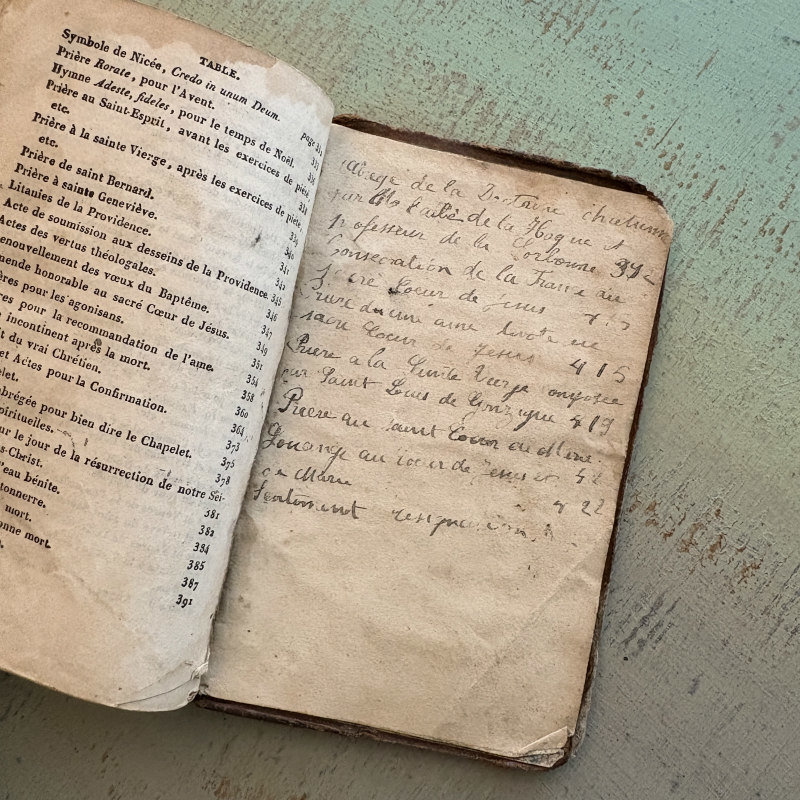 TABLE.
Symbole de Nicée, Credo in unum Deum. page
Prière Rorate, pour l'Avent.
Hymne Adeste, fideles, pour le temps de Noël.
Prière au Saint-Esprit, avant les exercices de piété,
etc.
Prière à la sainte Vierge, après les exercices de piété,
etc.
Prière de saint Bernard.
Prière à sainte Geneviève.
Litanies de la Providence.
Acte de soumission aux desseins de la Providence. 345
Actes des vertus théologales. 346
enouvellement des vœux du Baptême. 347
mende honorable au sacré Cœur de Jésus. 349
ères pour les agonisans. 351
res pour la recommandation de l'ame. 354
incontinent après la mort. 358
it du vrai Chrétien. 360
et Actes pour la Confirmation. 364
elet. 373
abrégée pour bien dire le Chapelet. 375
pirituelles. 378
ur le jour de la résurrection de notre Sei-
s-Christ. 381
l'eau bénite. 382
tonnerre. 384
mort. 385
onne mort. 387
391
Abregé de la Doctrine chretienne
par de la Hogue
professeur de la Sorbonne 392
Consecration de la France au
Coeur de jesus
une ame devote
sacré Coeur de Jesus 415
Priere a la Sainte Vierge composée
par Saint Louis de Gonzague 419
Priere au saint Coeur de Marie
Louange au coeur de Jesus et
de Marie 422